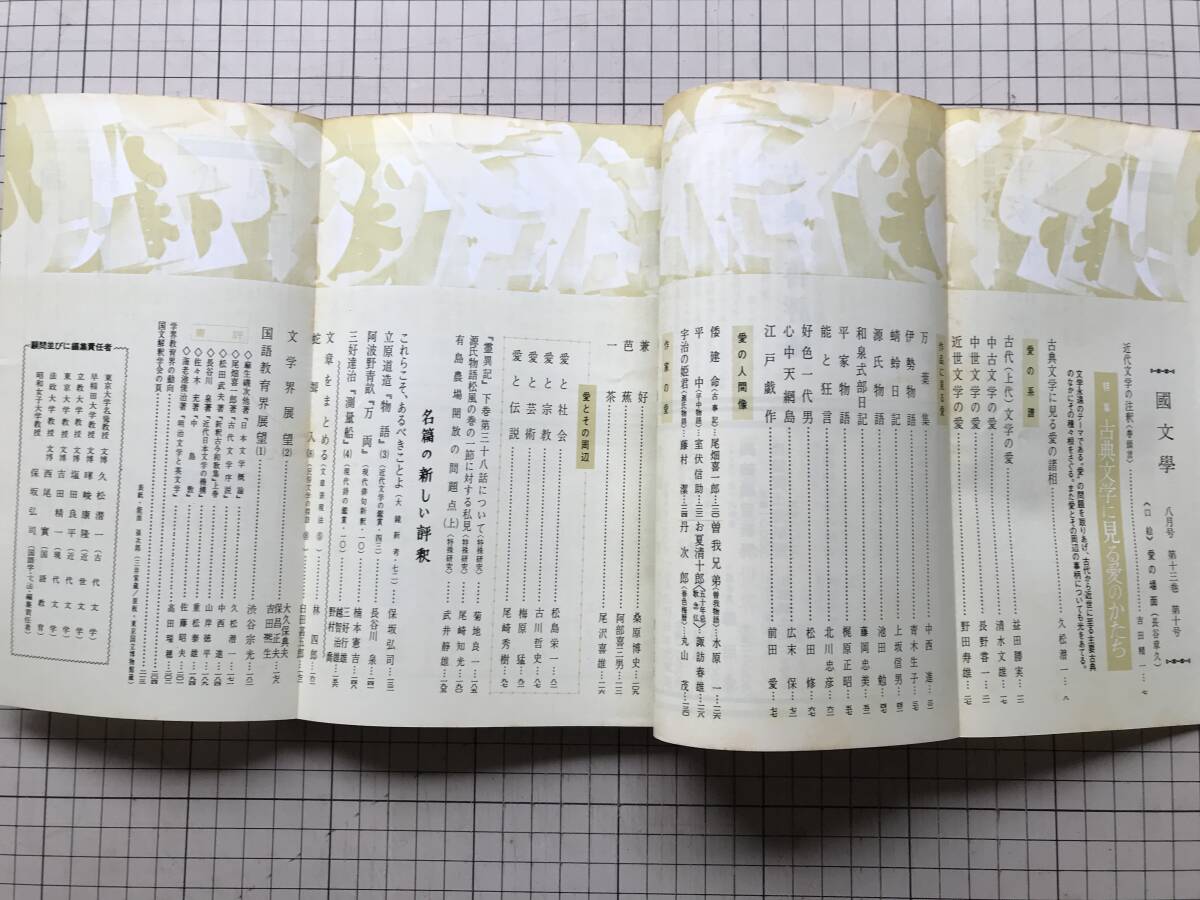 國文學
八月号 第十三巻 第十号
〈口絵〉愛の場面(長谷章久)
近代文学の注釈〈巻頭言〉……吉田精一…七
特集 古典文学に見る愛のかたち
文学永遠のテーマである“愛”の問題を取りあげ、古代から近世に至る主要古典
のなかにその種々相をさぐる。また愛とその周辺の事柄についても光をあてる。
古典文学に見る愛の諸相……久松潜一…八
愛の系譜
古代(上代)文学の愛……益田勝実
中古文学の愛……清水文雄
中世文学の愛……長野甞一
近世文学の愛……野田寿雄
作品に見る愛
万葉集……中西進
伊勢物語……青木生子
蜻蛉日記……上坂信男
源氏物語……池田勉
和泉式部日記……藤岡忠美
平家物語……梶原正昭
能と狂言……北川忠彦
好色一代男……松田修
心中天網島……広末保
江戸戯作……前田愛
愛の人間像
倭建命(古事記)…尾畑喜一郎
曽我兄弟(曽我物語)…水原一
平中(平中物語)…室伏信助
お夏清十郎…諏訪春雄
宇治の姫君(源氏物語)…藤村潔
丹次郎(春色梅暦)…丸山茂
作家の愛
兼好……桑原博史
芭蕉……阿部喜三男
一茶……尾沢喜雄
愛とその周辺
愛と社会……松島栄一
愛と宗教……古川哲史
愛と芸術……梅原猛
愛と伝説……尾崎秀樹
『霊異記』下巻第三十八話について(特殊研究)……菊地良一
源氏物語松風の巻の一節に対する私見(特殊研究)……尾崎知光
有島農場開放の問題点(上)(特殊研究)……武井静雄
名篇の新しい評釈
これらこそ、あるべきことよ(大鏡新考・七二)……保坂弘司
立原道造『物語』(3)(近代文学の鑑賞・四三)……長谷川泉
阿波野青畝『万両』(現代俳句新釈・一〇)……楠本憲吉
三好達治『測量船』(4)(現代詩の鑑賞・一〇)……三好行雄
文章をまとめる(文章表現法⑤)
蛇聟入⑧
文学界展望(2)
国語教育界展望(1)……渋谷宗光
書評
◇麻生磯次他著『日本文学概論』……久松潜一
◇尾畑喜一郎著『古代文学序説』……中西進
◇松田武夫著『新釈古今和歌集』上巻……山岸徳平
◇長谷川泉著『近代日本文学の機構』……重松泰雄
◇佐々木充著『中島敦』……佐藤昭夫
◇海老池俊治著『明治文学と英文学』……高田瑞穂
学界教育界の動向
国文解釈学会の頁
表紙・能面 孫次郎(三井家蔵)/原板・東京国立博物館蔵
顧問並びに編集責任者
東京大学名誉教授 文博 久松潜一(古代文学)
早稲田大学教授 文博 暉峻康隆(近世文学)
立教大学教授 文博 塩田良平(近代文学)
東京大学教授 文博 吉田精一(現代文学)
法政大学名誉教授 西尾實(国語教育)
昭和女子大学教授 保坂弘司(国語学・文法・編集責任者)